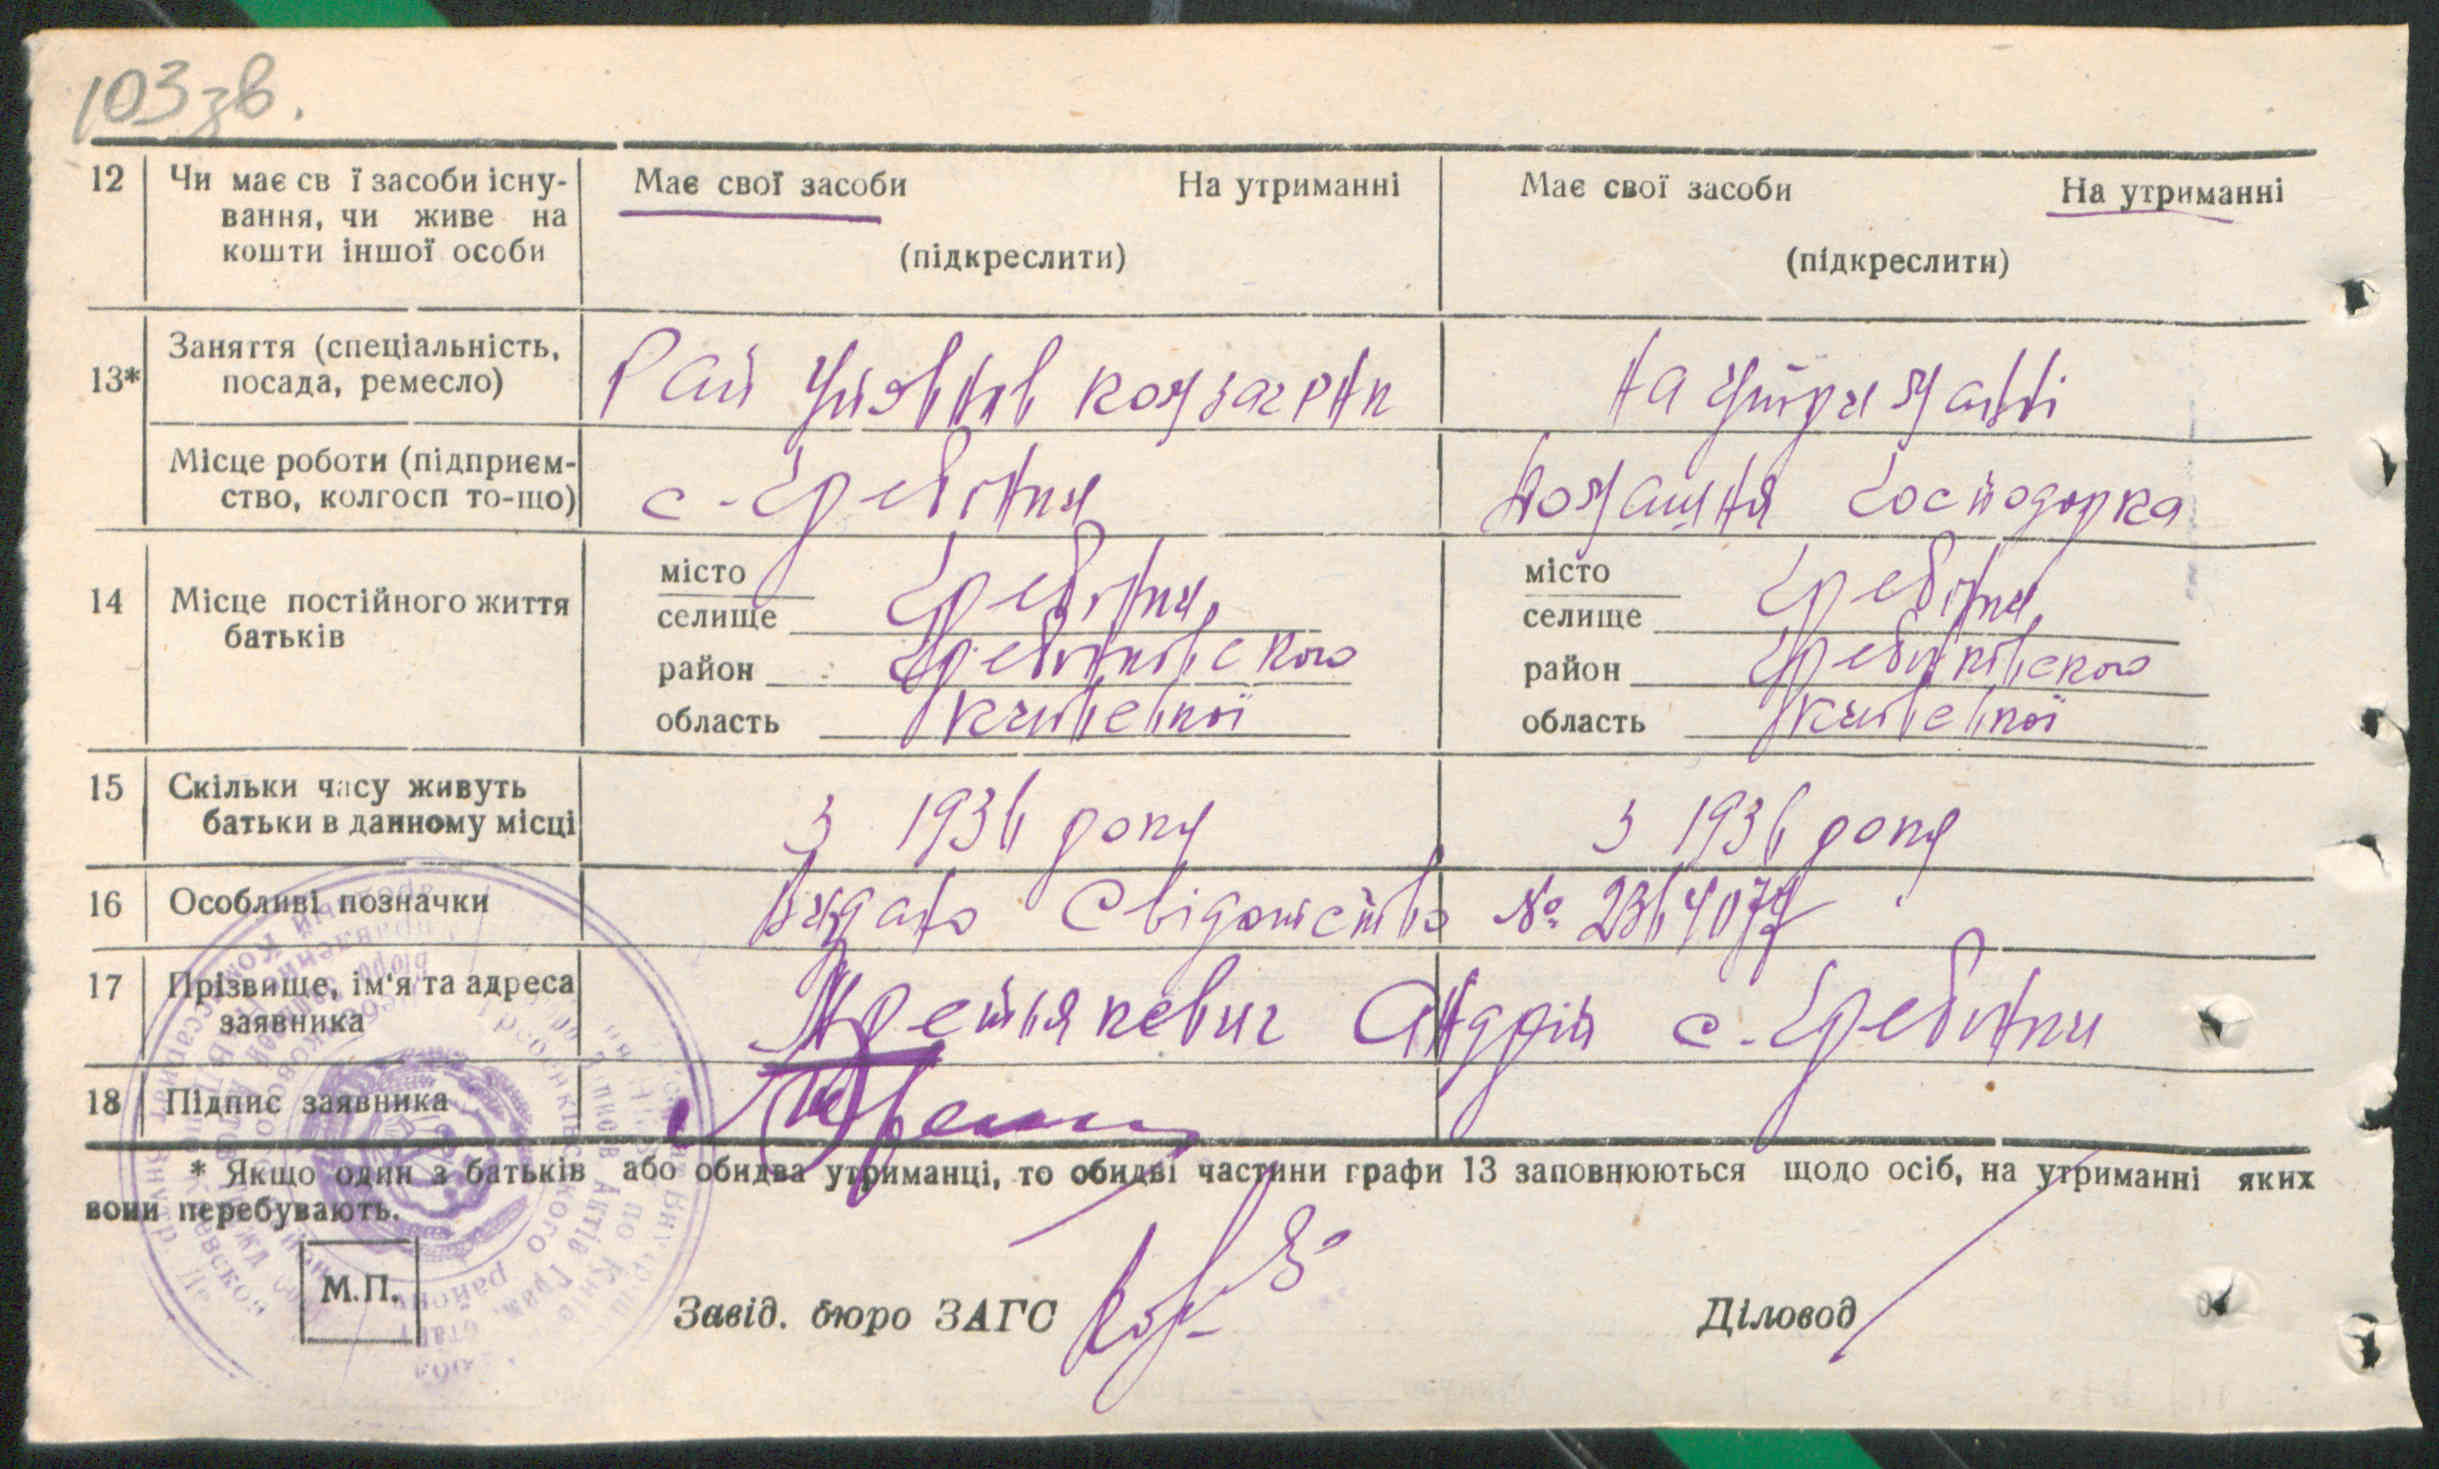 103зв.
12 Чи має св ї засоби існу- Має свої засоби На утриманні Має свої засоби На утриманні
вання, чи живе на
кошти іншої особи (підкреслити) (підкреслити)
13* Заняття (спеціальність,
посада, ремесло) Рай На утриманні
Місце роботи (підприєм-
ство, колгосп то-що) с. Гребінки Домашня Господарка
14 Місце постійного життя
батьків
місто
селище Гребінки, Гребінки
район Гребінківского Гребінківского
область Київської Київської
15 Скільки часу живуть
батьки в данному місці З 1936 року З 1936 року
16 Особливі позначки Видано Свідоцтво №
17 Прізвище, ім'я та адреса
заявника Третьякевич Андрій с. Гребінки
18 Підпис заявника
* Якщо один з батьків або обидва утриманці, то обидві частини графи 13 заповнюються щодо осіб, на утриманні яких
вони перебувають.
М.П.
Завід. бюро ЗАГС Діловод